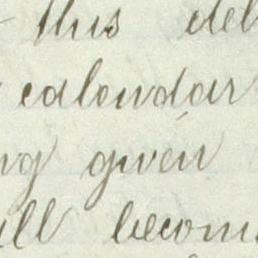 this del
calendar
ng given
ill becom